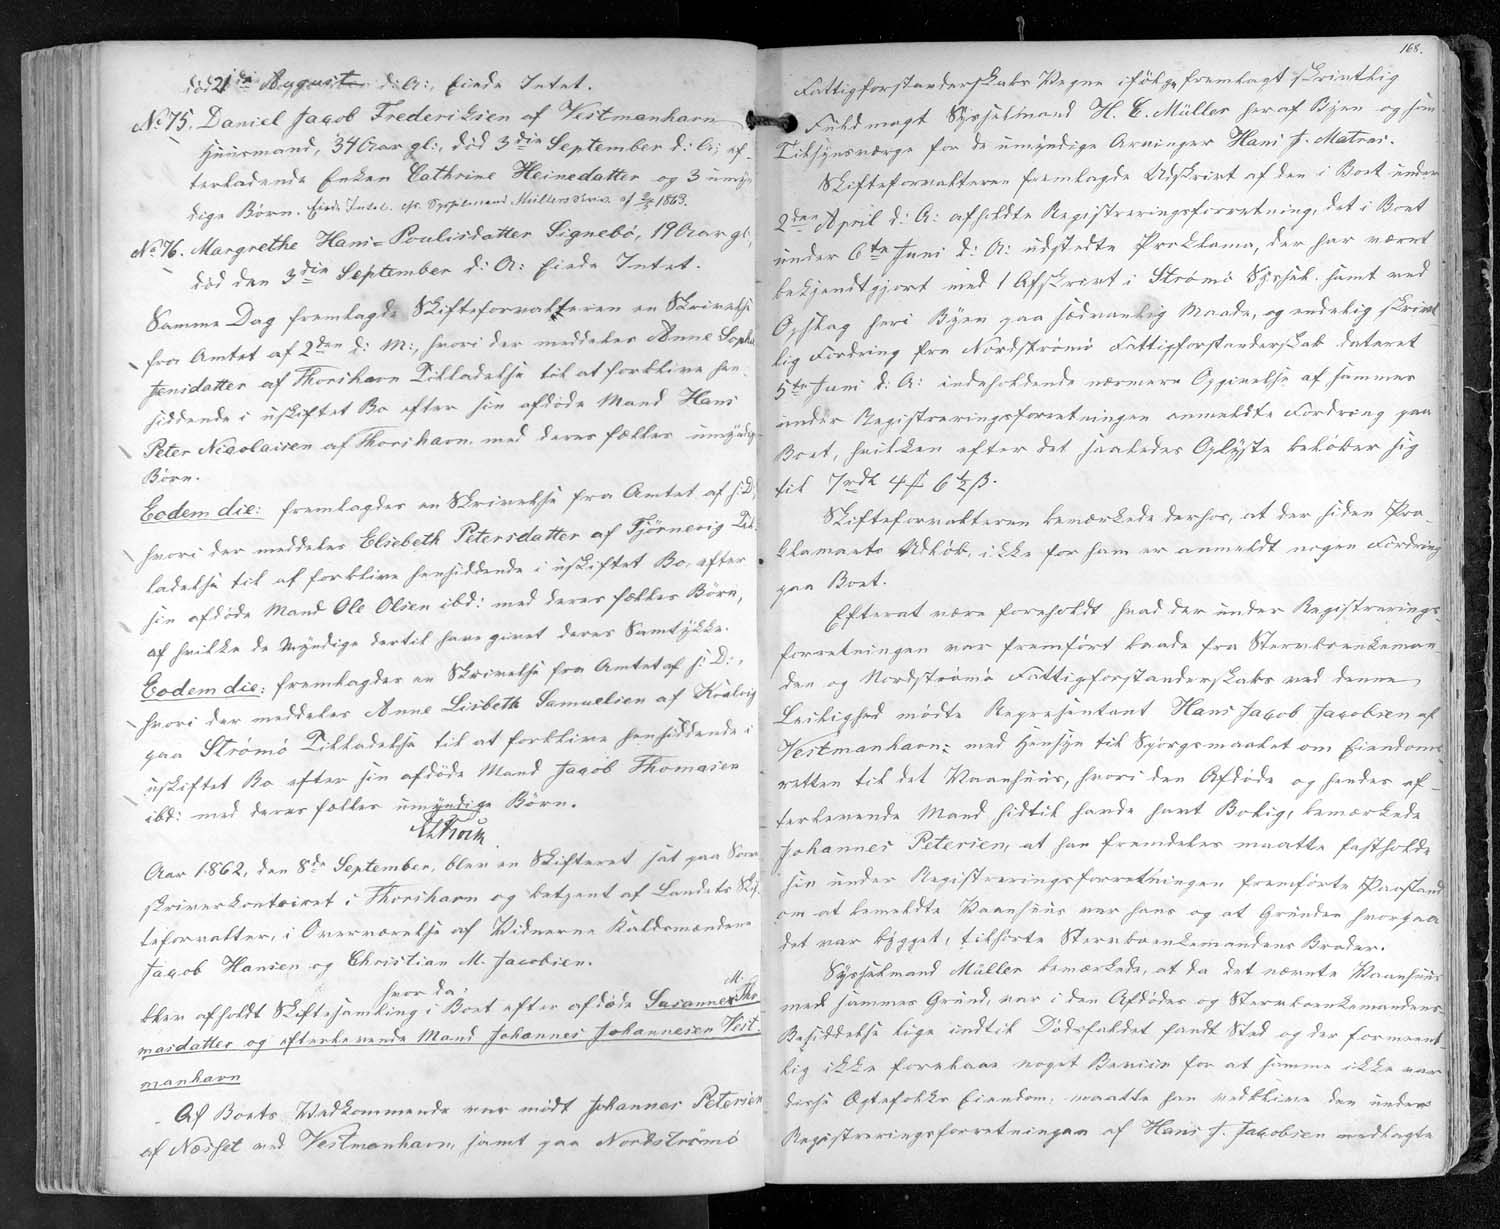 død 21de August d: A:, Eiede Intet.
No 75. Daniel Jacob Frederiksen af Vestmanhavn
Huusmand, 34 Aar gl:, død 3die September d: A:, ef-
terladende Enken Cathrine Heinedatter og 3 umyn
dige Børn. Eiede Intet. cfr. Sysselmand Müllers Skriv. af 1863.
No 76. Margrethe Hans-Poulisdatter Signebø, 19 Aar gl:,
død den 3die September d: A: Eiede Intet.
Samme Dag fremlagde Skifteforvalteren en Skrivelse
fra Amtet af 2den d: M:, hvori der meddeles Anne Sophie
Jensdatter af Thorshavn Tilladelse til at forblive hen-
siddende i uskiftet Bo efter sin afdøde Mand Hans
Peter Nicolaisen af Thorshavn med deres fælles umyndige
Børn.
Eodem die: fremlagdes en Skrivelse fra Amtet af s: D:
hvori der meddeles Elsebeth Petersdatter af Tjørnevig Til-
ladelse til at forblive hensiddende i uskiftet Bo efter
sin afdøde Mand Ole Olsen ibd: med deres fælles Børn,
af hvilke de Myndige dertil have givet deres Samtykke.
Eodem die: fremlagdes en Skrivelse fra Amtet af s: D:,
hvori der meddeles Anne Lisbeth Samuelsen af Kvalvig
paa Strømø Tilladelse til at forblive hensiddende i
uskiftet Bo efter sin afdøde Mand Jacob Thomasen
ibd: med deres fælles umyndige Børn.
Aar 1862, den 8de September, blev en Skifteret sat paa Soren
skriverkontoiret i Thorshavn og betjent af Landets Skif
teforvalter, i Overværelse af Vidnerne Kaldsmændene
Jacob Hansen og Christian M. Jacobsen.
hvor da:
blev afholdt Skiftesamling i Boet efter afdøde Susanne M. Tho
masdatter og efterlevende Mand Johannes Johannesen Vest-
manhavn
Af Boets Vedkommende var mødt Johannes Petersen
af Næsset ved Vestmanhavn, samt paa Nordstrømø
168.
Fattigforstanderskabs Vegne ifølge fremlagt skriftlig
Fuldmagt Sysselmand H. C. Müller her af Byen og som
Tilsynsværge for de umyndige Arvinger Hans J. Matras.
Skifteforvalteren fremlagde Udskrift af den i Boet under
2den April d: A: afholdte Registreringsforretning, det i Boet
under 6te Juni d: A: udstedte Proklama, der har været
bekjendtgjort ved 1 Afskrift i Strømø Syssel samt ved
Opslag her i Byen paa sædvanlig Maade, og endelig skrivt-
lig Fordring fra Nordstrømø Fattigforstanderskab dateret
5te Juni d: A: indeholdende nærmere Opgivelse af sammes
under Registreringsforretningen anmeldte Fordring paa
Boet, hvilken efter det saaledes Oplyste beløber sig
til 7 rdl 4 ₰ 6½ ß.
Skifteforvalteren bemærkede derhos, at der siden Pro-
klamaets Udløb, ikke for ham er anmeldt nogen Fordring
paa Boet.
Efterat være foreholdt hvad der under Registrerings-
forretningen var fremført baade fra Stervboenkeman-
den og Nordstrømø Fattigforstanderskabs ved denne
Leilighed mødte Repræsentant Hans Jacob Jacobsen af
Vestmanhavn: med Hensyn til Spørgsmaalet om Eiendoms
retten til det Vaanhuus, hvori den Afdøde og hendes ef-
terlevende Mand hidtil havde havt Bolig, bemærkede
Johannes Petersen, at han fremdeles maatte fastholde
sin under Registreringsforretningen fremførte Paastand
om at bemeldte Vaanhuus var hans og at Grunden hvorpaa
det var bygget, tilhørte Stervboenkemandens Broder.
Sysselmand Müller bemærkede, at da det nævnte Vaanhuus
med sammes Grund, var i den Afdødes og Stervboenkemandens
Besiddelse lige indtil Dødsfaldet fandt Sted og der formeent-
lig ikke forelaae noget Beviis for at samme ikke var
disse Ægtefolks Eiendom, maatte han vedblive den under
Registreringsforretningen af Hans J. Jacobsen nedlagte